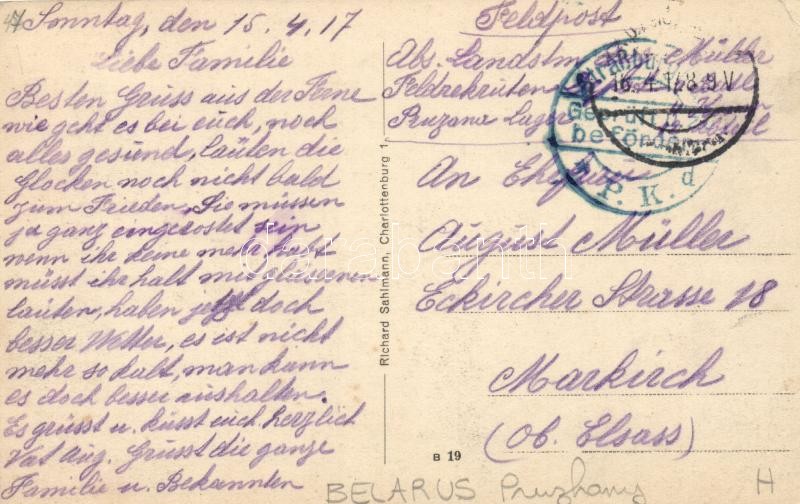 Sonntag, den 15.4.17
Liebe Familie
Besten Gruss aus der Ferne
wie geht es bei euch, noch
alles gesund, läuten die
Glocken noch nicht bald
zum Frieden, Sie müssen
ja ganz eingerostet sein
wenn ihr keine mehr habt
müsst ihr halt mit
läuten, haben jetzt doch
besser Wetter, es ist nicht
mehr so kalt, man kann
es doch besser aushalten.
Es grüsst u. küsst euch herzlich
Vat Aug. Grüsst die ganze
Familie u. Bekannten
Richard Sahlmann, Charlottenburg 1
B 19
Feldpost
Abs. Landstm Müller
Feldrekruten
Pruzana Lager
Geprüft
befördern
P. K.
16.4.17 8-9 V
An
August Müller
Eckircher Strasse 18
Markirch
(Ob. Elsass)
BELARUS Pruzhany
H
darabanth